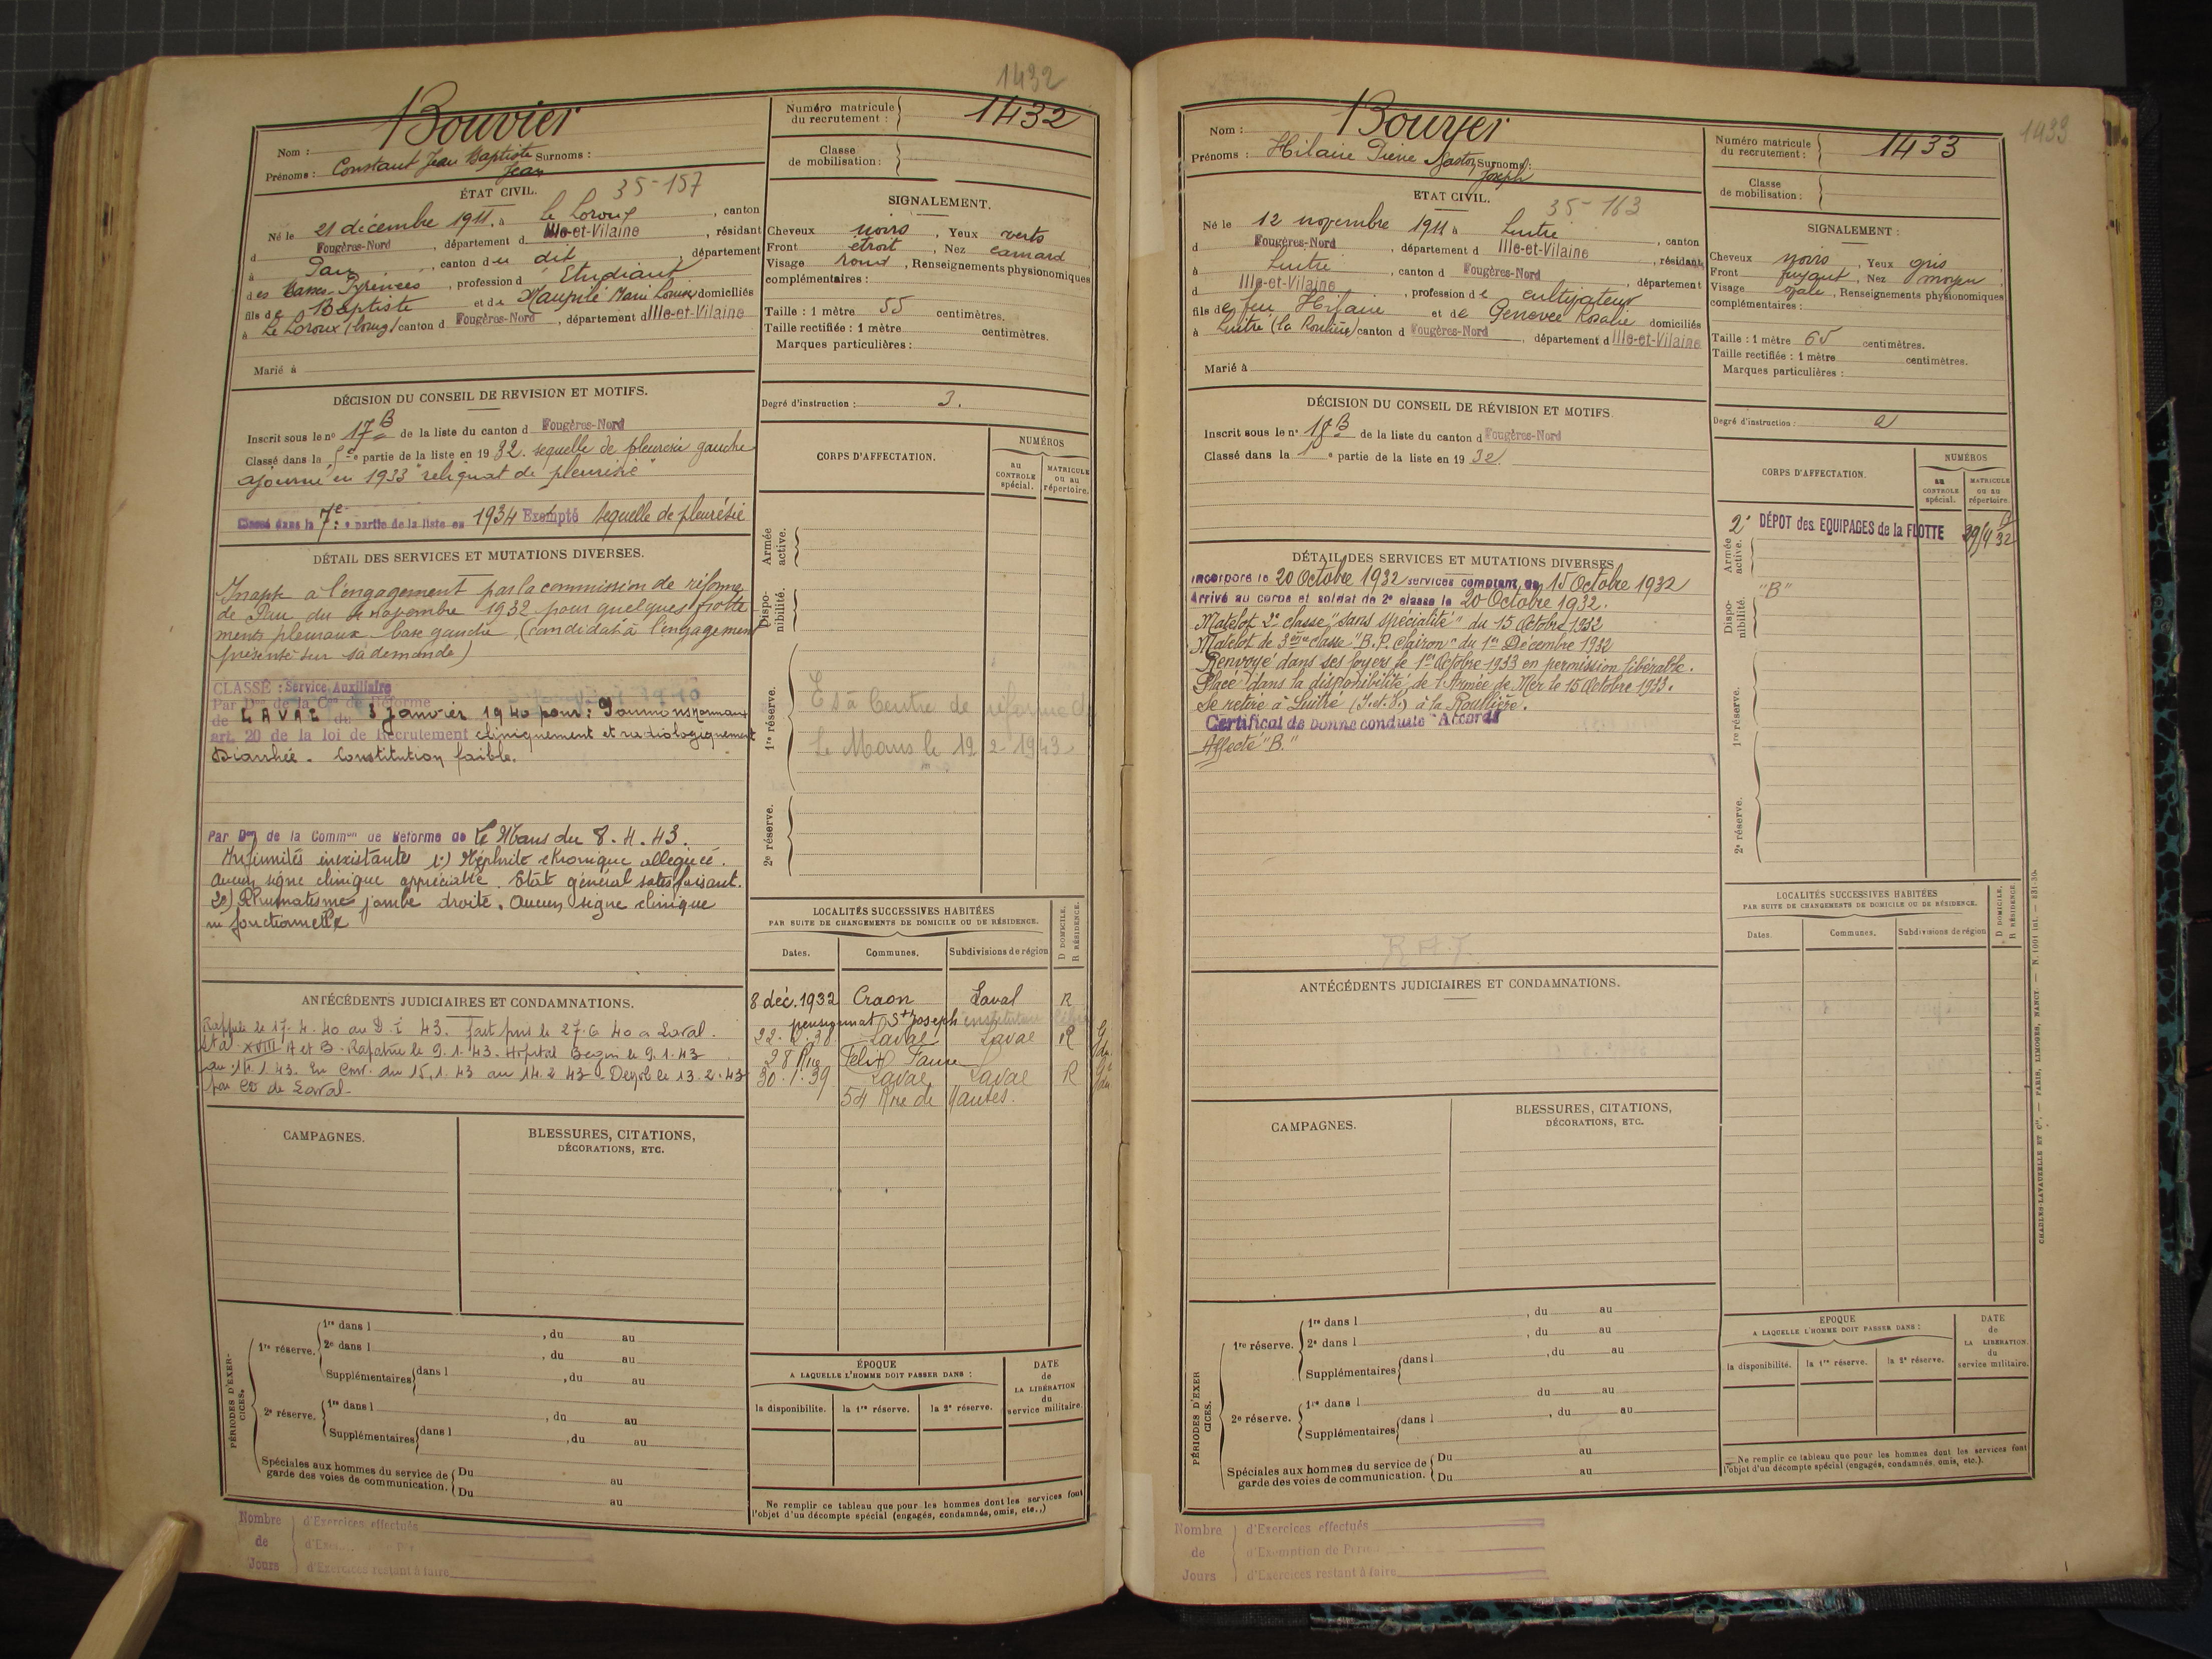 1432
Nom : Bouvier
Prénoms : Constant Jean Baptiste Surnoms :
Jean
Numéro matricule du recrutement : 1432
Classe de mobilisation :
ÉTAT CIVIL.
35-157
Né le 21 décembre 1911, à Le Loroux, canton
d Fougères-Nord, département d Ille-et-Vilaine, résidant
à Pau, canton du dit, département
des Basses-Pyrénées, profession d'Etudiant
fils de Baptiste et de Maupilé Marie Louise domiciliés
à Le Loroux (bourg) canton d Fougères-Nord, département d Ille-et-Vilaine
Marié à
SIGNALEMENT.
Cheveux noirs, Yeux verts
Front étroit, Nez camard
Visage rond, Renseignements physionomiques
complémentaires :
Taille : 1 mètre 55 centimètres.
Taille rectifiée : 1 mètre centimètres.
Marques particulières :
DÉCISION DU CONSEIL DE REVISION ET MOTIFS.
Inscrit sous le n° 17 B de la liste du canton d Fougères-Nord
Classé dans la 5e partie de la liste en 1932. sequelle de pleuresie gauche
Ajourné en 1933 "reliquat de pleurésie"
Classé dans la 7e partie de la liste en 1934 Exempté sequelle de pleurésie
Degré d'instruction : 3.
CORPS D'AFFECTATION.
NUMÉROS
au CONTROLE spécial.
MATRICULE ou au répertoire.
Armée active.
Disponibilité.
1re réserve.
Est à Centre de réforme
Le Mans le 12-2-1943
2e réserve.
DÉTAIL DES SERVICES ET MUTATIONS DIVERSES.
Inapte à l'engagement par la commission de réforme
de Pau du novembre 1932 pour quelques frotte
ments pleuraux base gauche, (candidat à l'engagement
présenté sur sa demande)
CLASSÉ : Service Auxiliaire
Par Don de la Con de Réforme
de LAVAL du 3 Janvier 1940 pour : Poumons normaux
art. 20 de la loi de Recrutement cliniquement et radiologiquement
Diarrhée. Constitution faible.
Par Don de la Common de Réforme de Le Mans du 8.4.43.
Infirmités inexistantes 1°) Néphrite chronique alléguée.
Aucun signe clinique appréciable. Etat général satisfaisant.
2e) Rhumatisme jambe droite. Aucun signe clinique
ni fonctionnelle
LOCALITÉS SUCCESSIVES HABITÉES
PAR SUITE DE CHANGEMENTS DE DOMICILE OU DE RÉSIDENCE.
Dates. Communes. Subdivisions de région
D DOMICILE. R RÉSIDENCE.
8 déc. 1932 Craon Laval R
pensionnat St Joseph instituteur libre
22.2.38 Laval Laval R
28 Rue Félix Faure
30.1.39 Laval Laval R
54 Rue de Nantes.
ANTÉCÉDENTS JUDICIAIRES ET CONDAMNATIONS.
Rappelé le 17.4.40 au D.I 43. fait pris le 27.6.40 à Laval.
XVIII A et B. Rapatrié le 9.1.43. Hopital Begin le 9.1.43
au 14.1.43. En Conv. du 15.1.43 au 14.2.43. le 13.2.43
par de Laval.
CAMPAGNES.
BLESSURES, CITATIONS,
DÉCORATIONS, ETC.
PÉRIODES D'EXERCICES.
1re réserve. 1re dans l , du au
2e dans l , du au
Supplémentaires dans l , du au
2e réserve. 1re dans l , du au
Supplémentaires dans l , du au
Spéciales aux hommes du service de garde des voies de communication. Du au
Du au
ÉPOQUE
A LAQUELLE L'HOMME DOIT PASSER DANS :
la disponibilité. la 1re réserve. la 2e réserve.
DATE de LA LIBÉRATION du service militaire.
Ne remplir ce tableau que pour les hommes dont les services font
l'objet d'un décompte spécial (engagés, condamnés, omis, etc.,)
Nombre de Jours
d'Exercices effectués
d'Exercices restant à faire
1433
Nom : Bouvier
Prénoms : Hilaire Pierre Surnoms :
Joseph
Numéro matricule du recrutement : 1433
Classe de mobilisation :
ETAT CIVIL.
35-163
Né le 12 novembre 1911 à Luitré, canton
d Fougères-Nord, département d Ille-et-Vilaine, résidant
à Luitré, canton d Fougères-Nord, département
d Ille-et-Vilaine, profession de cultivateur
fils de feu Hilaire et de Genovee Rosalie domiciliés
à Luitré (la Roulière) canton d Fougères-Nord, département d Ille-et-Vilaine
Marié à
SIGNALEMENT :
Cheveux noirs, Yeux gris
Front fuyant, Nez moyen
Visage ovale, Renseignements physionomiques
complémentaires :
Taille : 1 mètre 65 centimètres.
Taille rectifiée : 1 mètre centimètres.
Marques particulières :
DÉCISION DU CONSEIL DE RÉVISION ET MOTIFS.
Inscrit sous le n° 18 B de la liste du canton d Fougères-Nord
Classé dans la 1e partie de la liste en 1932.
Degré d'instruction : 2
CORPS D'AFFECTATION.
NUMÉROS
au CONTROLE spécial.
MATRICULE ou au répertoire.
Armée active.
2e DÉPOT des EQUIPAGES de la FLOTTE
"B"
Disponibilité.
1re réserve.
2e réserve.
DÉTAIL DES SERVICES ET MUTATIONS DIVERSES
Incorporé le 20 Octobre 1932 services comptant du 15 Octobre 1932
Arrivé au corps et soldat de 2e classe le 20 Octobre 1932.
Matelot 2e classe "sans spécialité" du 15 Octobre 1932
Matelot de 3ème classe "B.P. clairon" du 1er Décembre 1932
Renvoyé dans ses foyers le 1er Octobre 1933 en permission libérable.
Placé dans la disponibilité de l'Armée de Mer le 15 Octobre 1933.
Se retire à Luitré (I.et.V.) à la Roullière.
Certificat de bonne conduite "Accordé"
Affecté "B."
R.A.T.
LOCALITÉS SUCCESSIVES HABITÉES
PAR SUITE DE CHANGEMENTS DE DOMICILE OU DE RÉSIDENCE.
Dates. Communes. Subdivisions de région
D DOMICILE. R RÉSIDENCE.
ANTÉCÉDENTS JUDICIAIRES ET CONDAMNATIONS.
CAMPAGNES.
BLESSURES, CITATIONS,
DÉCORATIONS, ETC.
PÉRIODES D'EXERCICES.
1re réserve. 1re dans l , du au
2e dans l , du au
Supplémentaires dans l , du au
du au
2e réserve. 1re dans l , du au
Supplémentaires dans l
Spéciales aux hommes du service de garde des voies de communication. Du au
Du au
EPOQUE
A LAQUELLE L'HOMME DOIT PASSER DANS :
la disponibilité. la 1re réserve. la 2e réserve.
DATE de LA LIBERATION du service militaire.
Ne remplir ce tableau que pour les hommes dont les services font
l'objet d'un décompte spécial (engagés, condamnés, omis, etc.).
CHARLES-LAVAUZELLE ET Cie. — PARIS, LIMOGES, NANCY. — N. 1001 int. — 831-30.
Nombre de Jours
d'Exercices effectués
d'Exemption de
d'Exercices restant à faire